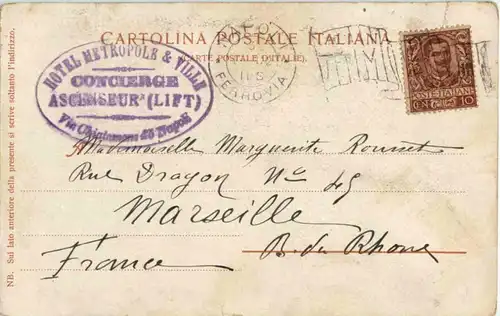 CARTOLINA POSTALE ITALIANA
(CARTE POSTALE D'ITALIE)
HOTEL METROPOLE & VILLE
CONCIERGE
ASCENSEUR (LIFT)
Via Chiatamone Napoli
FERROVIA
POSTE ITALIANE
CEN 10
Mademoiselle Marguerite Rousset
Rue Dragon No 45
Marseille
B. du Rhone
France
NB. Sul lato anteriore della presente si scrive soltanto l'indirizzo.